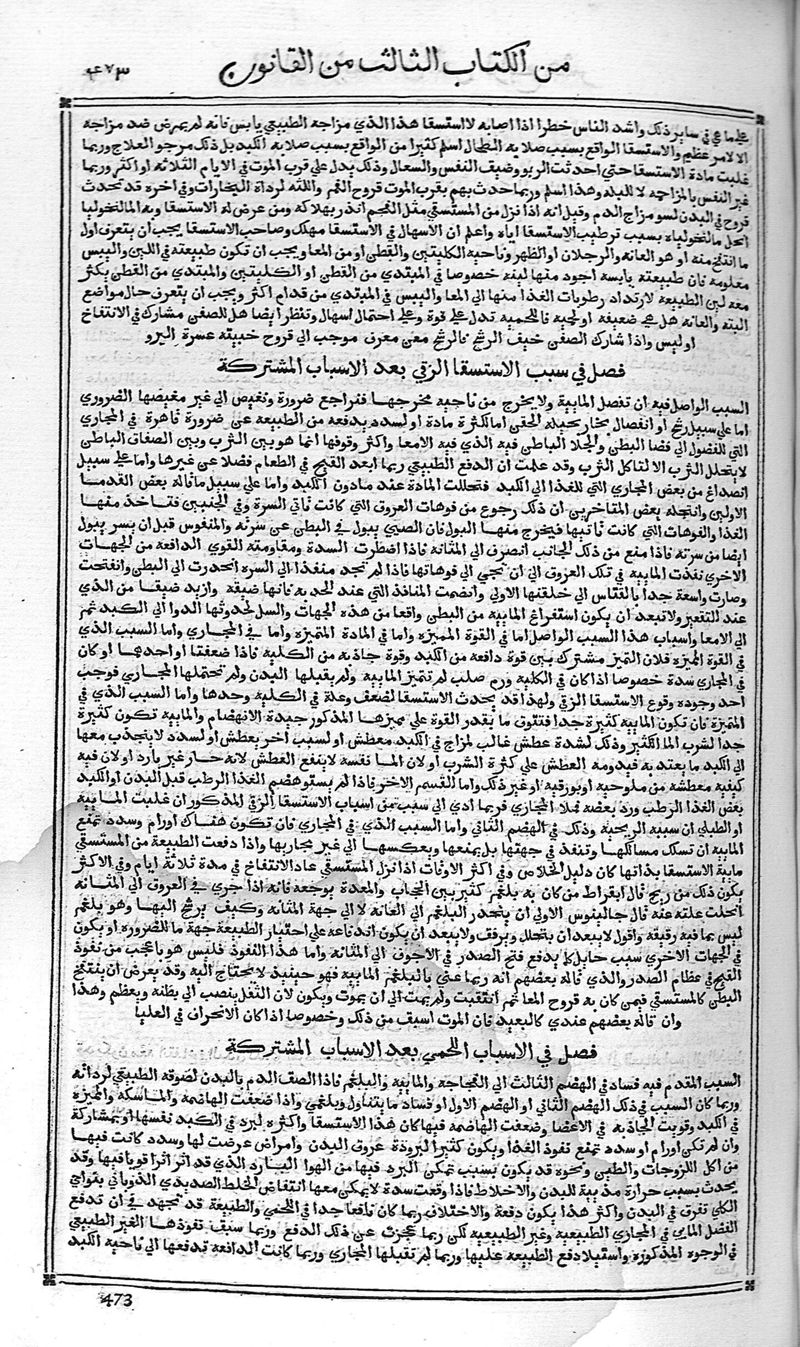 من الكتاب الثالث من القانون ٤٧٣
علي ما هي في ساير ذلك واشد الناس خطرا اذا اصابه لااستسقا هذا الذي مزاجه الطبيعي يابس فانه لم يمرض ضد مزاجه
الا لامر عظيم والاستسقا الواقع بسبب صلابه الطحال اسلم كثيرا من الواقع بسبب صلابه الكبد بل ذلك مرجو العلاج وربما
غلبت مادة الاستسقا حتي احدثت الربو وضيق النفس والسعال وذلك يدل علي قرب الموت في الايام الثلاثه او اكثر وربما
غير النفس بالمزاحمه لا للبله وهذا اسلم وربما حدث بهم بقرب الموت قروح الفم واللثه لرداة البخارات وفي اخره قد تحدث
قروح في البدن لسو مزاج الدم وقيل انه اذا نزل من المستسقي مثل الفحم انذر بهلاكه ومن عرض له الاستسقا وبه المالنخوليا
انحل مالنخولياه بسبب ترطيب الاستسقا اياه واعلم ان الاسهال في الاستسقا مهلك وصاحب الاستسقا يجب ان يتعرف اول
ما انتفخ منه او هو العانه والرجلان او الظهر وناحيه الكليتين والقطن او من المعا ويجب ان تكون طبيعته في اللين واليبس
معلومه فان طبيعته يابسه اجود منها لينه خصوصا في المبتدي من القطن او الكليتين والمبتدي من القطن يكثر
معه لين الطبيعه لارتداد رطوبات الغذا منها الي المعا واليبس في المبتدي من قدام اكثر ويجب ان يتعرف حال مواضع
البته والعانه هل هي ضعيفه او لحيه فاللحميه تدل علي قوة وعلي احتمال اسهال وتنظر ايضا هل للصفن مشارك في الانتفاخ
او ليس واذا شارك الصفن خيف الرشح فالرشح معن معرف موجب الي قروح خبيثه عسرة البرو
فصل في سبب الاستسقا الزقي بعد الاسباب المشتركة
السبب الواصل فيه ان تفصل المايية ولا يخرج من ناحيه مخرجها فتراجع ضرورة وتغيض الي غير مغيضها الضروري
اما علي سبيل رشح او انفصال بخار يحيله الحقن اما لكثرة مادة او لسدد يدفعه من الطبيعه عن ضرورة قاهرة في المجاري
التي للفضول الي فضا البطن والخلا الباطن فيه الذي فيه الامعا واكثر وقوفها انما هو بين الثرب وبين الصفاق الباطن
لا يتخلل الثرب الا لتاكل الثرب وقد علمت ان الدفع الطبيعي ربما ابعد القيح في الطعام فضلا عن غيرها واما علي سبيل
انصداع من بعض المجاري التي للغذا الي الكبد فتحللت المادة عند مادون الكبد واما علي سبيل ما قاله بعض القدما
الاولين وانتحله بعض المتاخرين ان ذلك رجوع من فوهات العروق التي كانت تاتي السرة وفي الجنين فتاخذ منها
الغذا والفوهات التي كانت تاتيها فيخرج منها البول فان الصبي يبول في البطن عن سرته والمنفوس قبل ان يسر يبول
ايضا من سرته فاذا منع من ذلك الجانب انصرف الي المثانه فاذا اضطرت السدة ومقاومته القوي الدافعه من الجهات
الاخري نفذت المايية في تلك العروق الي ان تجي الي فوهاتها فاذا لم تجد منفذا الي السره انحدرت الي البطن وانفتحت
وصارت واسعة جدا بالقياس الي خلقتها الاولي وانضمت المنافذ التي عند الحدبه فانها ضيقه وازيد ضيقا من الذي
عند التقعير ولا يبعد ان يكون استفراغ المايية من البطن واقعا من هذه الجهات والسل لحدوثها الدوا الي الكبد ثم
الي الامعا واسباب هذا السبب الواصل اما في القوة المميزه واما في المادة المتميزه واما في المجاري واما السبب الذي
في القوة المميزه فلان التميز مشترك بين قوة دافعه من الكبد وقوة جاذبه من الكليه فاذا ضعفتا او احديهما او كان
في المجاري سدة خصوصا اذا كان في الكليه ورم صلب لم تتميز المايية ولم يقبلها البدن ولم تحتملها المجاري فوجب
احد وجوده وقوع الاستسقا الزقي ولهذا قد يحدث الاستسقا لضعف وعلة في الكليه وحدها واما السبب الذي في
المتميزة فان تكون المايية كثيرة جدا فتفوق ما يقدر القوة علي تميزها المذكور جيدة الانهضام والمايية تكون كثيرة
جدا لشرب الما الكثير وذلك لشدة عطش غالب لمزاج في الكبد معطش او لسبب اخر يعطش او لسدد لا ينجذب معها
الي الكبد ما يعتد به فيدومه العطش علي كثرة الشرب او لان الما نفسه لا ينفع العطش لانه حار غير بارد او لان فيه
كيفيه معطشه من ملوحيه او بورقيه او غير ذلك واما القسم الاخر فاذا لم يستو هضم الغذا الرطب قبل البدن او الكبد
بعض الغذا الرطب ورد بعضه فملا المجاري فربما ادي الي سبب من اسباب الاستسقا الزقي المذكور ان غلبت المايية
او الطبلي ان سببه الريحية وذلك في الهضم الثاني واما السبب الذي في المجاري فان تكون هناك اورام وسدد تمنع
المايية ان تسلك مسالكها وتنفذ في جهتها بل يمنعها ويعكسها الي غير مجاريها واذا دفعت الطبيعة من المستسقي
مايية الاستسقا بذاتها كان دليل الخلاص وفي اكثر الاوقات اذا نزل المستسقي عاد الانتفاخ في مدة ثلاثة ايام وفي الاكثر
يكون ذلك من ريح قال ابقراط من كان به بلغم كثير بين الحجاب والمعدة يوجعه فانه اذا جري في العروق الي المثانه
انحلت علته عنه قال جالينوس الاولي ان ينحدر البلغم الي العانه لا الي جهة المثانه وكيف يرشح اليها وهو بلغم
ليس بما فيه رقيقه واقول لا يبعد ان يتحلل ويرقق ولا يبعد ان يكون اندفاعه علي اختيار الطبيعة جهة ما للضروره او يكون
في الجهات الاخري سبب حايل كما يدفع فتح الصدر في الاجوف الي المثانه واما هذا النفوذ فليس هو باعجب من نفوذ
القيح في عظام الصدر والذي قاله بعضهم انه ربما عني بالبلغم المايية فهو حينيذ لا يحتاج اليه وقد يعرض ان ينتفخ
البطن كالمستسقي فيمن كان به قروح المعا ثم انتقبت ولم يمت الي ان يموت ويكون لان الثفل ينصب الي بطنه ويعظم وهذا
وان قاله بعضهم عندي كالبعيد فان الموت اسبق من ذلك وخصوصا اذا كان الانخراق في العليا
فصل في الاسباب اللحمي بعد الاسباب المشتركة
السبب المقدم فيه فساد في الهضم الثالث الي الفجاجه والمايية والبلغم فاذا الصف الدم بالبدن لصوقه الطبيعي لرداته
وربما كان السبب في ذلك الهضم الثاني او الهضم الاول او فساد ما يتناول وبلغمي واذا ضعفت الهاضمه والماسكه والمميزه
في الكبد وقويت الجاذبه في الاعضا وضعفت الهاضمه فيها كان هذا الاستسقا واكثره لبرد في الكبد نفسها او بمشاركة
وان لم تكن اورام او سدد تمنع نفوذ الغذا ويكون كثيرا لبرودة عروق البدن وامراض عرضت لها وسدد كانت فيها
من اكل اللزوجات والطين ونحوه قد يكون بسبب تمكن البرد فيها من الهوا البارد الذي قد اثر اثرا قويا فيها وقد
يحدث بسبب حرارة مذيبة للبدن والاخلاط فاذا وقعت سدة لا يمكن معها انتفاض الخلط الصديدي الذوباني بنواحي
الكلي تفرق في البدن واكثر هذا يكون دفعة والاختلاف ربما كان نافعا جدا في اللحمي والطبيعة قد تجهد في ان تدفع
الفضل المايي في المجاري الطبيعيه وغير الطبيعيه لكن ربما عجزت عن ذلك الدفع وربما سبق نفوذها الغير الطبيعي
في الوجوه المذكوره واستيلا دفع الطبيعه عليها وربما لم تقبلها المجاري وربما كانت الدافعه تدفعها الي ناحيه الكبد
473